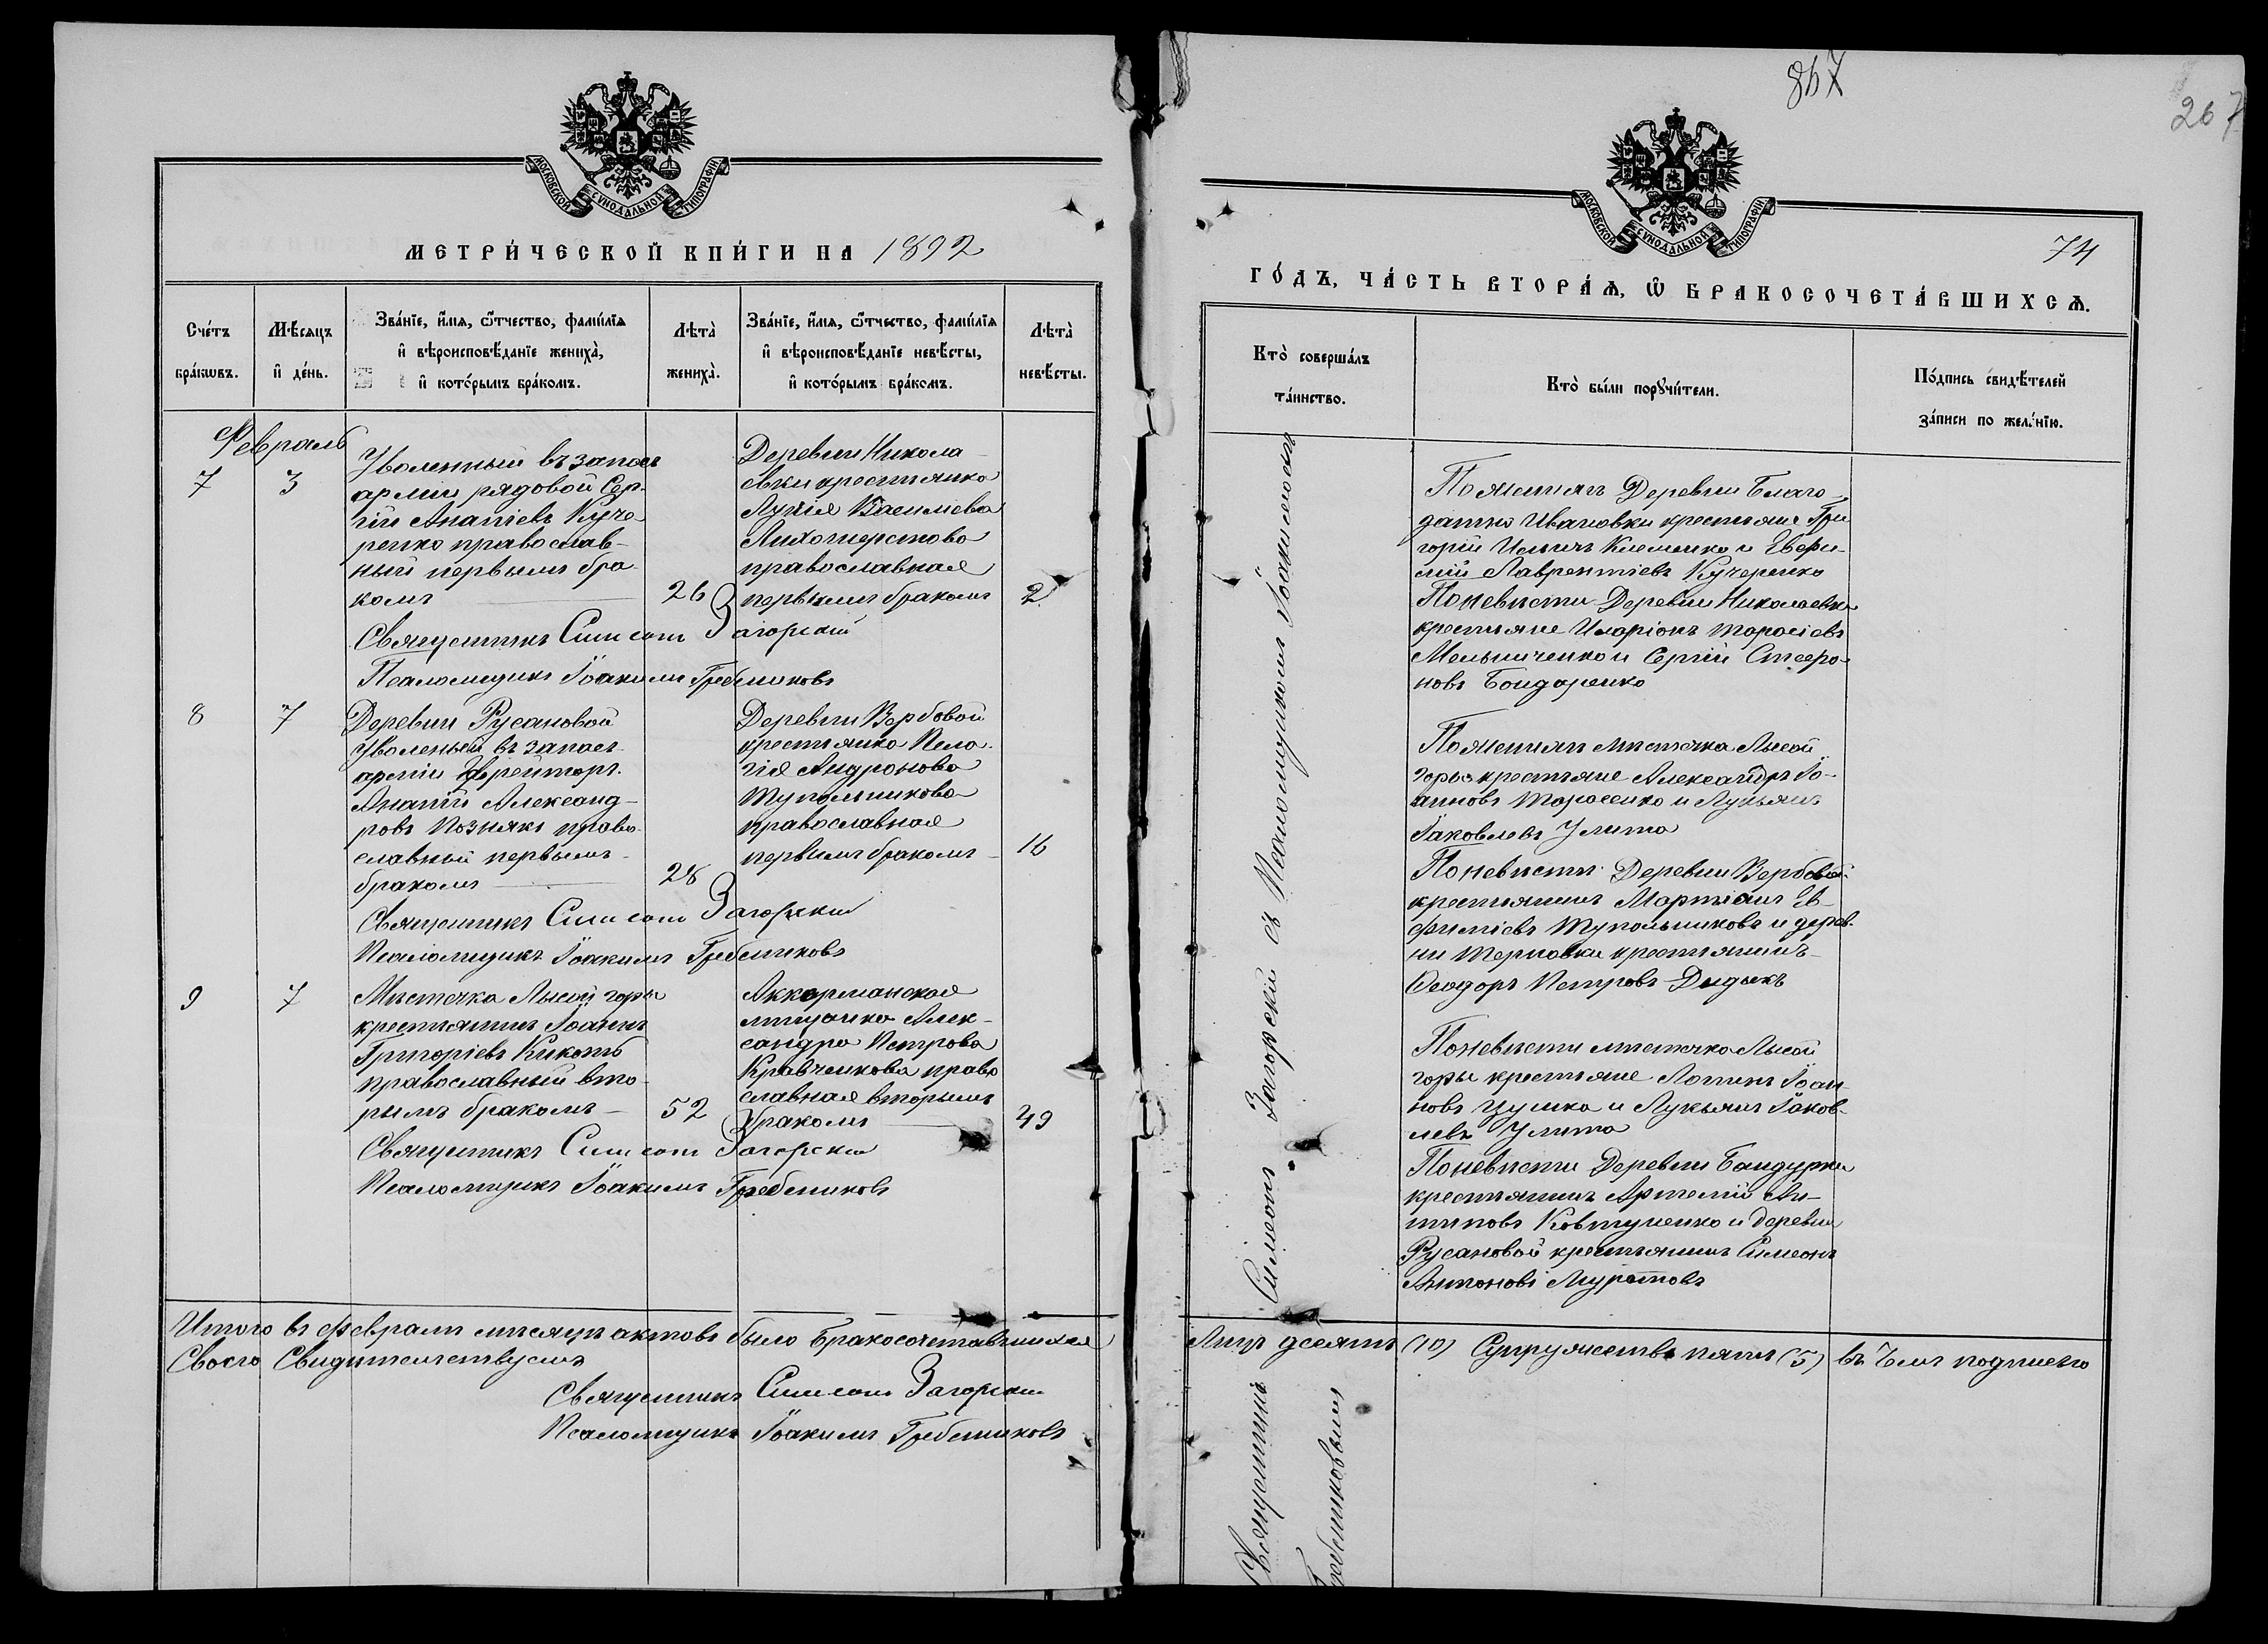 МОСКОВСКОЙ СѴНОДАЛЬНОЙ ТИПОГРАФІИ
МЕТРИ́ЧЕСКОЙ КНИ́ГИ НА 1892
Сче́тъ бра́кѡвъ.
Мѣ́сяцъ и҆ де́нь.
Зва́нїе, и҆́мя, ѻ҆́тчество, фами́лїя
и҆ вѣроисповѣ́данїе жениха̀,
и҆ кото́рымъ бра́комъ.
Лѣта̀ жениха̀.
Зва́нїе, и҆́мя, ѻ҆́тчество, фами́лїя
и҆ вѣроисповѣ́данїе невѣ́сты,
и҆ кото́рымъ бра́комъ.
Лѣта̀ невѣ́сты.
Февраль
7 3
Уволенный въ запасъ
арміи рядовой Сер-
гій Ананіевъ Куче-
ренко православ-
ный первымъ бра-
комъ 26
Деревни Никола-
евки крестьянка
Лукія Василіева
Лихошерстова
православная
первымъ бракомъ 2
Священникъ Симеонъ Загорскій
Псаломщикъ Іоакимъ Гребенниковъ
8 7
Деревни Русановой
уволеный въ запасъ
арміи Ефрейторъ
Ананій Александ-
ровъ Познякъ право-
славный первымъ
бракомъ 28
Деревни Вербовой
крестьянка Пела-
гія Андронова
Тупольникова
православная
первымъ бракомъ 16
Священникъ Симеонъ Загорскій
Псаломщикъ Іоакимъ Гребенниковъ
9 7
Мѣстечка Лысой горы
крестьянинъ Іоаннъ
Григоріевъ Кикоть
православный вто-
рымъ бракомъ 52
Аккерманская
мѣщанка Алек-
сандра Петрова
Кравченкова право
славная вторымъ
бракомъ 49
Священникъ Симеонъ Загорскій
Псаломщикъ Іоакимъ Гребенниковъ
Итого въ Февралѣ мѣсяцѣ актовъ было Бракосочетавшихся
Своею Свидѣтельствуемъ
Священникъ Симеонъ Загорскій
Псаломщикъ Іоакимъ Гребенниковъ
867
267
МОСКОВСКОЙ СѴНОДАЛЬНОЙ ТИПОГРАФІИ
74
ГО́ДЪ, ЧА́СТЬ ВТОРА́Я, Ѡ҆ БРАКОСОЧЕТА́ВШИХСЯ.
Кто̀ соверша́лъ
та́инство.
Кто̀ бы́ли порꙋчи́тели.
По́дпись свидѣ́телей
за́писи по жела́нїю.
Священникъ Симеонъ Загорскій съ Псаломщикомъ Іоакимомъ
Гребенниковымъ
По женихѣ Деревни Благо-
датно Ивановки крестьяне Гри
горій Ильинъ Клеменко и Евфи-
мій Лаврентіевъ Кучеренко
По невѣсти Деревни Николаевки
крестьяне Иларіонъ Тарасіевъ
Мельниченко и Сергій Стефа-
новъ Бондаренко
По женихѣ мѣстечка Лысой
горы крестьяне Александръ Іо-
анновъ Тарасенко и Лукьянъ
Іаковлевъ Улита
По невѣсти Деревни Вербовой
крестьянинъ Мартіанъ Ев-
фиміевъ Тупольниковъ и дерев-
ни Терновки крестьянинъ
Ѳеодоръ Петровъ Дидыкъ
По невѣсти мѣстечка Лысой
горы крестьяне Логинъ Іоан-
новъ Цушко и Лукьянъ Іаков-
левъ Улита
По невѣсти Деревни Бандурки
крестьянинъ Артемій Ан-
типовъ Ковтуненко и деревни
Русановой крестьянинъ Симеонъ
Антоновъ Муратовъ
Лицъ десять (10) Супружествъ пять (5) въ чемъ подписью